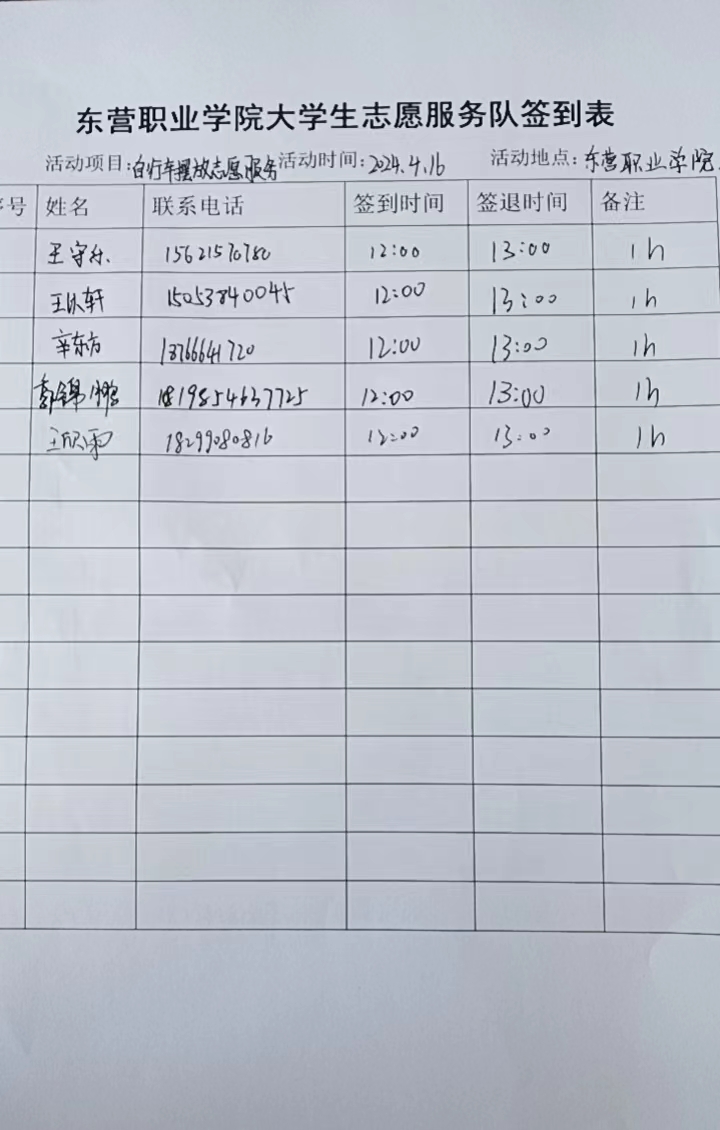 东营职业学院大学生志愿服务队签到表
活动项目:自行车摆放志愿服务 活动时间:2024.4.16 活动地点:东营职业学院
序号 姓名 联系电话 签到时间 签退时间 备注
王守 12:00 13:00 1h
轩 15053840045 12:00 13:00 1h
辛东方 12:00 13:00 1h
郭锦鹏 12:00 13:00 1h
王欣雨 18299080816 12:00 13:00 1h